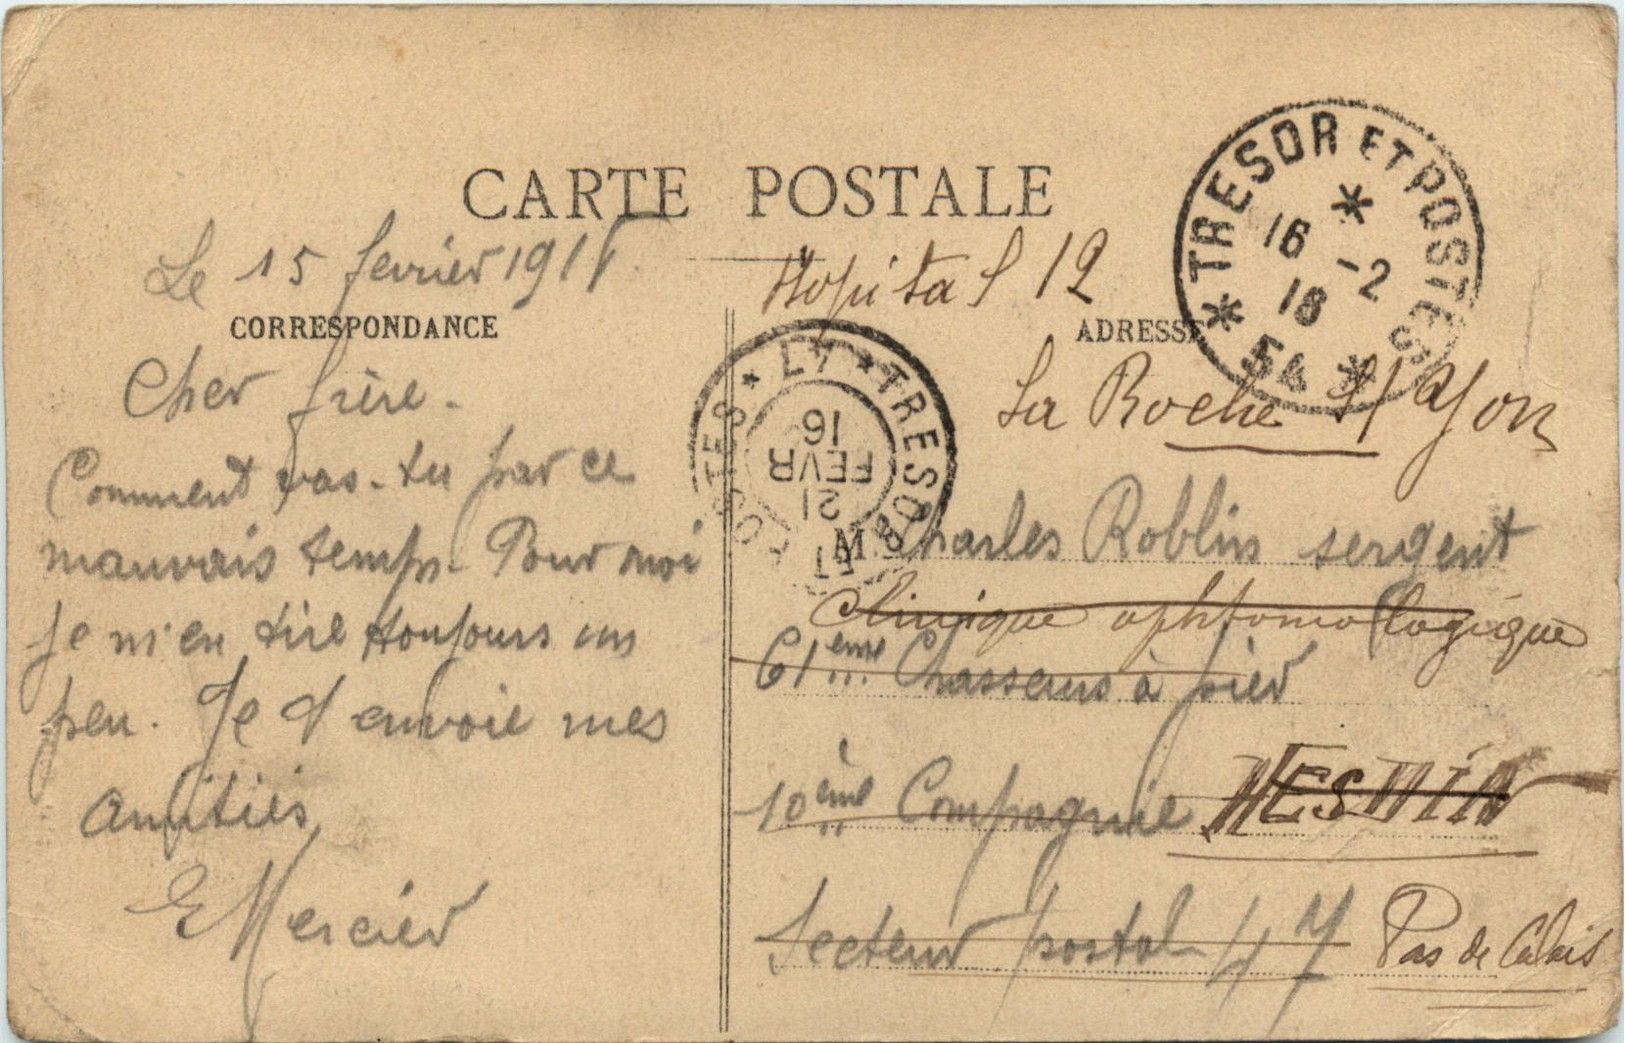 CARTE POSTALE
Le 15 fevrier 191
CORRESPONDANCE
Cher frère.
Comment vas-tu par ce
mauvais temps. Pour moi
je m'en tire toujours un
peu. Je t'envoie mes
amitiés
E Mercier
Hopital 12
ADRESSE
La Roche S/ Yon
M. Charles Roblin sergent
Clinique ophtomologique
61ème Chasseurs à pied
10ème Compagnie HESDIN
Secteur postal 47 Pas de Calais
* TRESOR ET POSTES *
*
16 -2
16
54
POSTES * 47 * TRESOR ET
21
FEVR
16